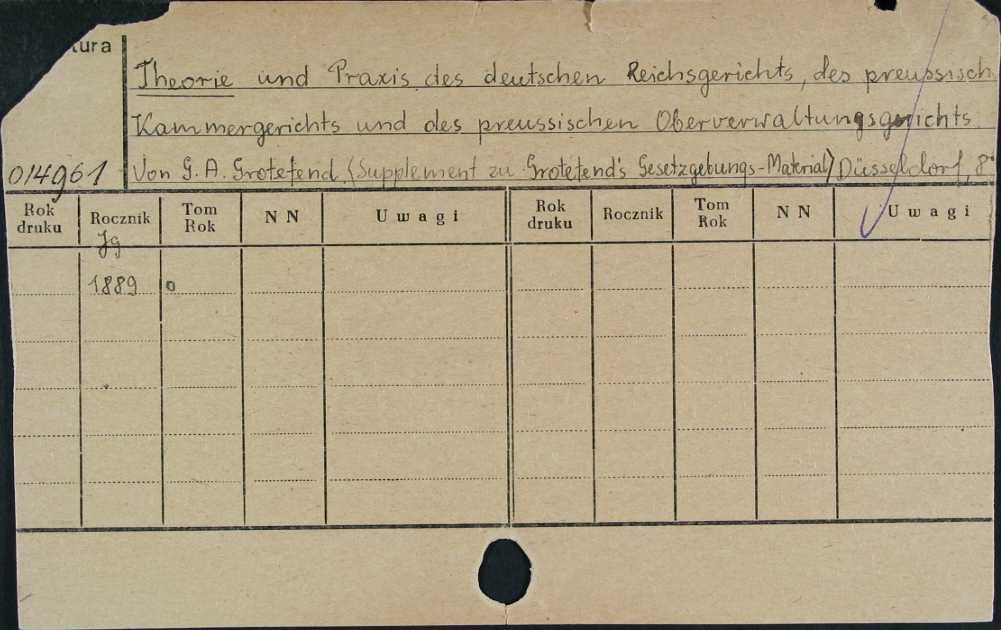 tura
Theorie und Praxis des deutschen Reichsgerichts, des preussisch
Kammergerichts und des preussischen Oberverwaltungsgerichts.
014961 Von G. A. Grotefend (Supplement zu Grotefend's Gesetzgebungs-Material) Düsseldorf, 8°
Rok druku Rocznik Tom Rok N N Uwagi Rok druku Rocznik Tom Rok N N Uwagi
Jg
1889 o